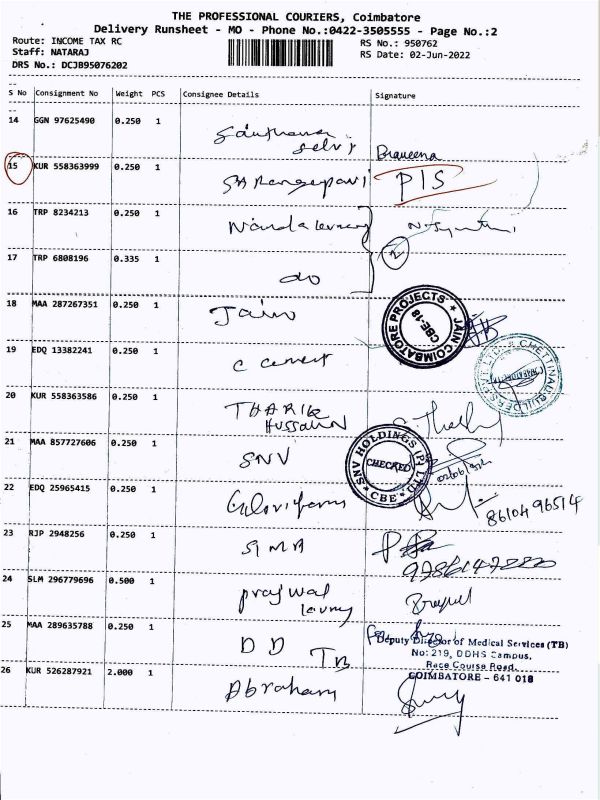 THE PROFESSIONAL COURIERS, Coimbatore
Delivery Runsheet - MO - Phone No.:0422-3505555 - Page No.:2
Route: INCOME TAX RC
RS No.: 950762
Staff: NATARAJ
RS Date: 02-Jun-2022
DRS No.: DCJB95076202
S No Consignment No Weight PCS Consignee Details Signature
14 GGN 97625490 0.250 1
selvi
Praveena
15 KUR 558363999 0.250 1
PIS
16 TRP 8234213 0.250 1
17 TRP 6808196 0.335 1
do
18 MAA 287267351 0.250 1 Jain
JAIN COIMBATORE PROJECTS
CBE-18
19 EDQ 13382241 0.250 1
C cement
20 KUR 558363586 0.250 1
THARIK
HUSSAIN
21 MAA 857727606 0.250 1
SNV
SNV HOLDINGS (P) LTD
CHECKED
CBE
22 EDQ 25965415 0.250 1
8610496514
23 RJP 2948256 0.250 1
24 SLM 296779696 0.500 1
25 MAA 289635788 0.250 1
DD
TB
Deputy Director of Medical Services (TB)
No: 219, DDHS Campus,
Race Course Road,
COIMBATORE - 641 018
26 KUR 526287921 2.000 1
Abraham